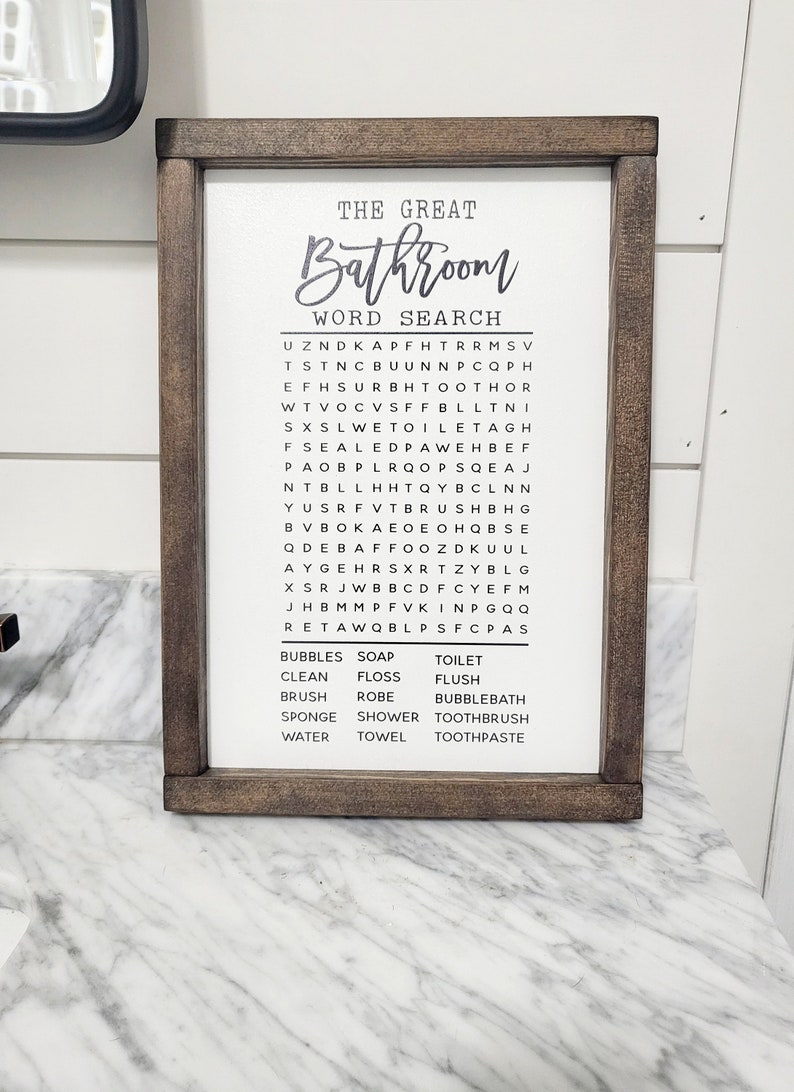 THE GREAT
Bathroom
WORD SEARCH
U Z N D K A P F H T R R M S V
T S T N C B U U N N P C Q P H
E F H S U R B H T O O T H O R
W T V O C V S F F B L L T N I
S X S L W E T O I L E T A G H
F S E A L E D P A W E H B E F
P A O B P L R Q O P S Q E A J
N T B L L H H T Q Y B C L N N
Y U S R F V T B R U S H B H G
B V B O K A E O E O H Q B S E
Q D E B A F F O O Z D K U U L
A Y G E H R S X R T Z Y B L G
X S R J W B B C D F C Y E F M
J H B M M P F V K I N P G Q Q
R E T A W Q B L P S F C P A S
BUBBLES SOAP TOILET
CLEAN FLOSS FLUSH
BRUSH ROBE BUBBLEBATH
SPONGE SHOWER TOOTHBRUSH
WATER TOWEL TOOTHPASTE